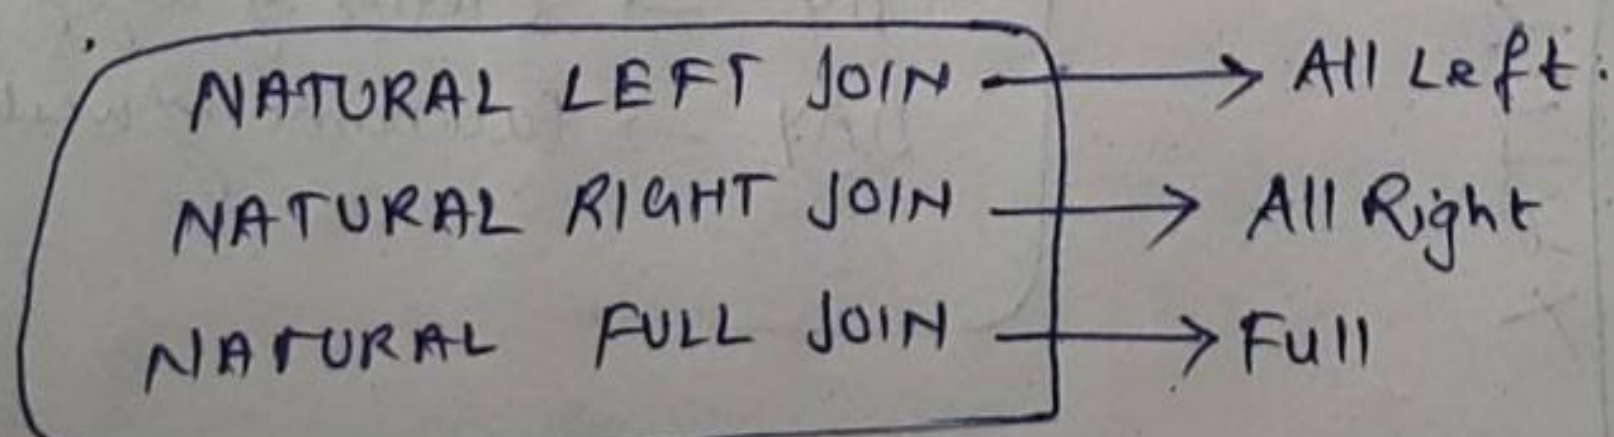 NATURAL LEFT JOIN → All Left.
NATURAL RIGHT JOIN → All Right
NATURAL FULL JOIN → Full